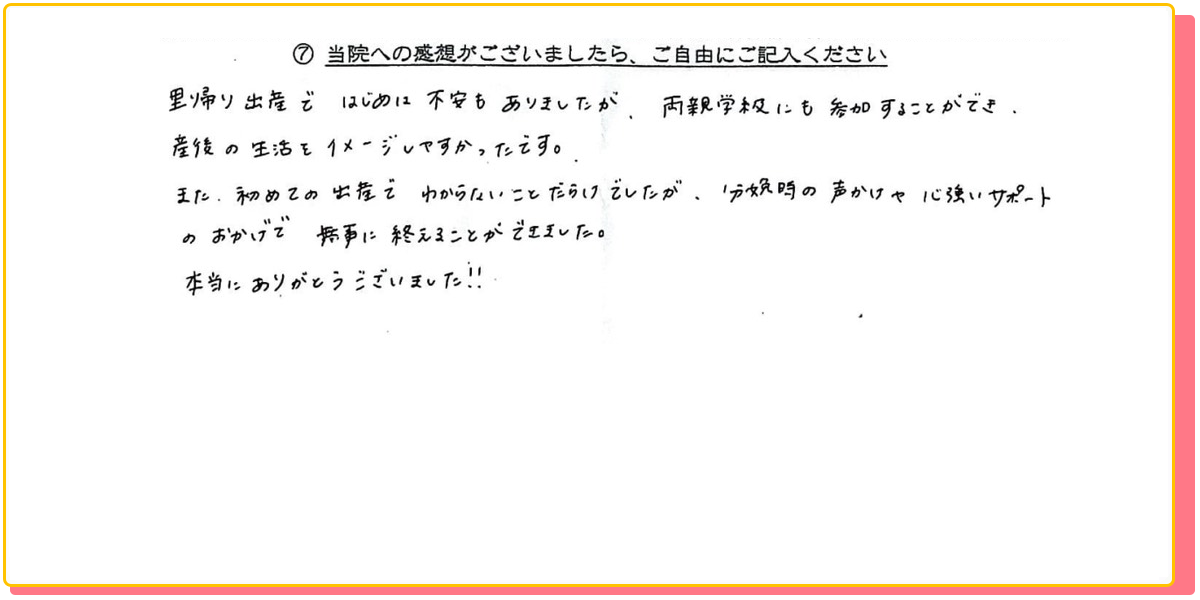 ⑦ 当院への感想がございましたら、ご自由にご記入ください
里帰り出産で はじめは 不安も ありましたが、両親学級にも 参加することができ、
産後の生活をイメージしやすかったです。
また、初めての出産で わからないことだらけでしたが、分娩時の声かけや 心強いサポート
のおかげで 無事に終えることができました。
本当にありがとうございました!!